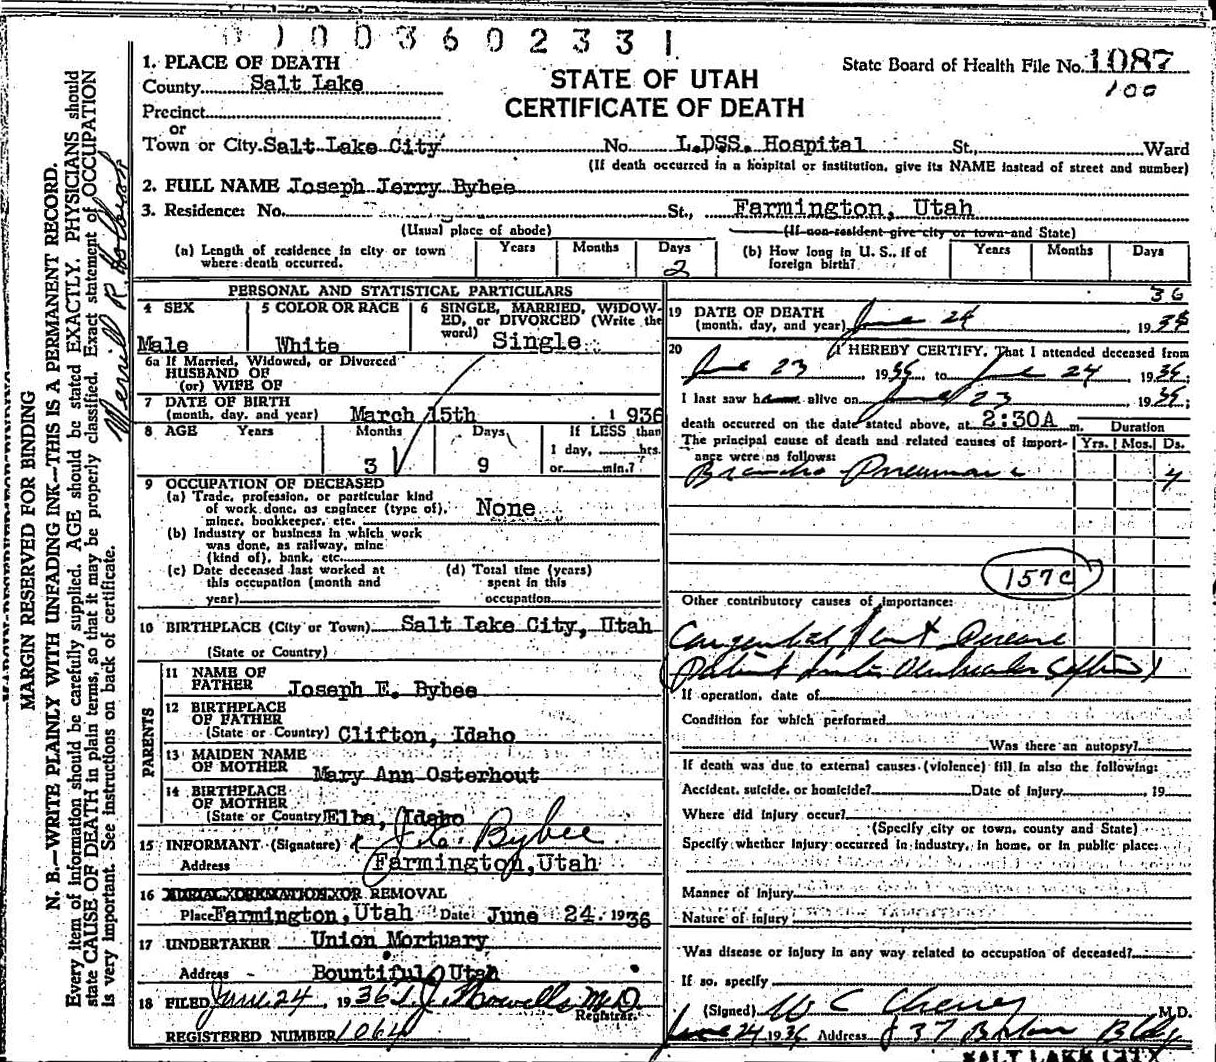 0 1 0 0 3 6 0 2 3 3 1
State Board of Health File No. 1087
100
STATE OF UTAH
CERTIFICATE OF DEATH
1. PLACE OF DEATH
County Salt Lake
Precinct
or
Town or City Salt Lake City No. L.DSS. Hospital St., Ward
(If death occurred in a hospital or institution, give its NAME instead of street and number)
2. FULL NAME Joseph Jerry Bybee
3. Residence: No. St., Farmington, Utah
(Usual place of abode) (If non-resident give city or town and State)
(a) Length of residence in city or town where death occurred. Years Months Days 2
(b) How long in U. S., if of foreign birth? Years Months Days
PERSONAL AND STATISTICAL PARTICULARS
4 SEX Male
5 COLOR OR RACE White
6 SINGLE, MARRIED, WIDOWED, or DIVORCED (Write the word) Single
6a If Married, Widowed, or Divorced
HUSBAND OF
(or) WIFE OF
7 DATE OF BIRTH
(month, day, and year) March 15th 1936
8 AGE Years Months 3 Days 9 If LESS than
1 day, hrs.
or min.?
9 OCCUPATION OF DECEASED
(a) Trade, profession, or particular kind
of work done, as engineer (type of),
miner, bookkeeper, etc. None
(b) Industry or business in which work
was done, as railway, mine
(kind of), bank, etc.
(c) Date deceased last worked at
this occupation (month and
year)
(d) Total time (years)
spent in this
occupation
10 BIRTHPLACE (City or Town) Salt Lake City, Utah
(State or Country)
PARENTS
11 NAME OF
FATHER Joseph E. Bybee
12 BIRTHPLACE
OF FATHER
(State or Country) Clifton, Idaho
13 MAIDEN NAME
OF MOTHER Mary Ann Osterhout
14 BIRTHPLACE
OF MOTHER
(State or Country) Elba, Idaho
15 INFORMANT (Signature) Bybee
Address Farmington, Utah
16 BURIAL, CREMATION, OR REMOVAL
Place Farmington, Utah Date June 24. 1936
17 UNDERTAKER Union Mortuary
Address Bountiful, Utah
18 FILED June 24, 1936 M.D.
Registrar.
REGISTERED NUMBER 1064
36
19 DATE OF DEATH
(month, day, and year) June 24 1936
20 I HEREBY CERTIFY, That I attended deceased from
June 23, 1936, to June 24, 1936;
I last saw h alive on June 23 1936;
death occurred on the date stated above, at 2:30A m. Duration
The principal cause of death and related causes of importance were as follows: Yrs. Mos. Ds.
Broncho Pneumonia 4
157c
Other contributory causes of importance:
Congenital Heart Disease
If operation, date of
Condition for which performed
Was there an autopsy?
If death was due to external causes (violence) fill in also the following:
Accident, suicide, or homicide? Date of injury 19
Where did injury occur?
(Specify city or town, county and State)
Specify whether injury occurred in industry, in home, or in public place:
Manner of injury
Nature of injury
Was disease or injury in any way related to occupation of deceased?
If so, specify
(Signed) W C M.D.
June 24 1936 Address Bldg
SALT LAKE CITY
MARGIN RESERVED FOR BINDING
N. B.—WRITE PLAINLY WITH UNFADING INK—THIS IS A PERMANENT RECORD.
Every item of information should be carefully supplied. AGE should be stated EXACTLY. PHYSICIANS should
state CAUSE OF DEATH in plain terms, so that it may be properly classified. Exact statement of OCCUPATION
is very important. See instructions on back of certificate.
Merrill R.